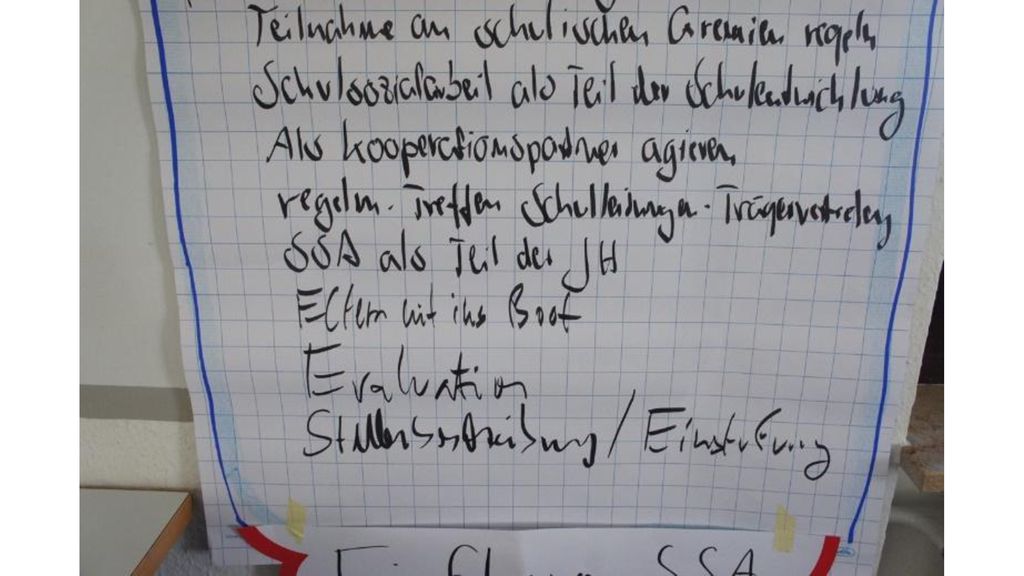 Teilnahme an schulischen Gremien regeln
Schulsozialarbeit als Teil der Schulentwicklung
Als Kooperationspartner agieren
regelm. Treffen Schulleitungen - Trägervertretung
SSA als Teil der JH
Eltern mit ins Boot
Evaluation
Stellenbeschreibung / Einstufung
SSA